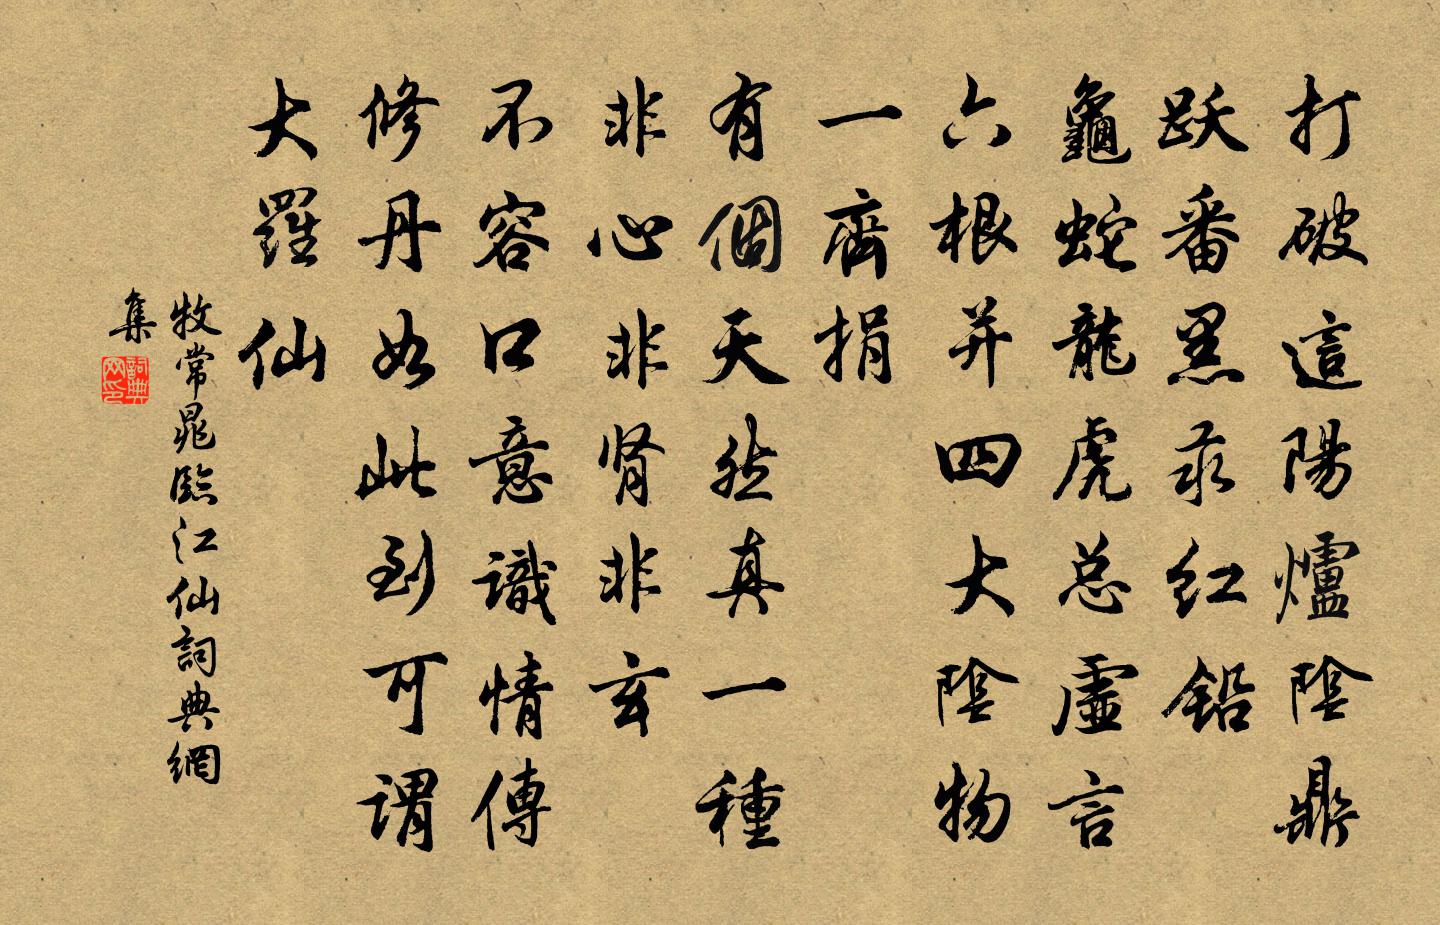 打破這陽爐陰鼎
跃番黑汞红鉛
龜蛇龍虎总虛言
六根并四大陰物
一齊捐
有個天然真一種
非心非肾非玄
不容口意識情傳
修丹如此到可謂
大羅仙
牧常晁臨江仙詞典網
集
詞典网印